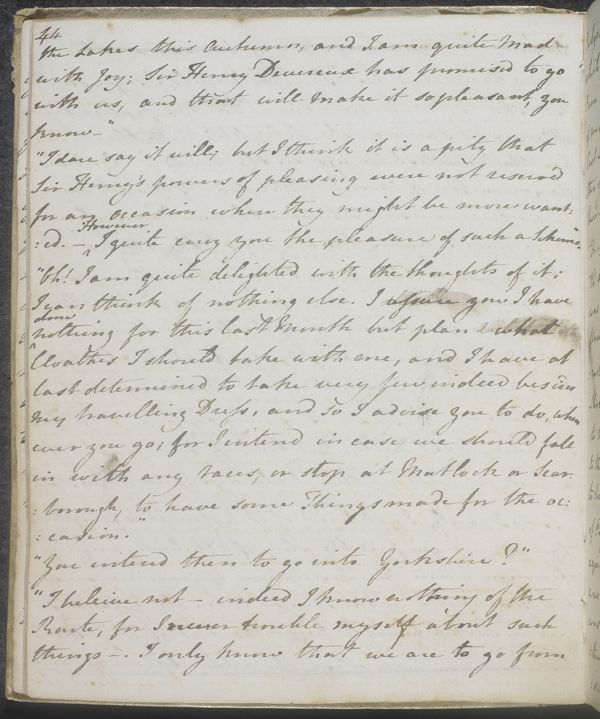 44
the Lakes this Autumn, and I am quite Mad
with Joy; Sir Henry Devereux has promised to go
with us, and that will make it so pleasant, you
know—"
"I dare say it will; but I think it is a pity that
Sir Henry's powers of pleasing were not reserved
for an occasion where they might be more want:
However
:ed. — I quite envy you the pleasure of such a Scheme".
"Oh! I am quite delighted with the thoughts of it;
I can think of nothing else. I assure you I have
done
nothing for this last Month but plan what
Cloathes I should take with me, and I have at
last determined to take very few indeed besides
my travelling Dress, and so I advise you to do, when
ever you go; for I intend in case we should fall
in with any races, or stop at Matlock or Scar:
:borough, to have some Things made for the oc:
:casion."
"You intend then to go into Yorkshire?"
"I beleive not — indeed I know nothing of the
Route, for I never trouble myself about such
things —. I only know that we are to go from